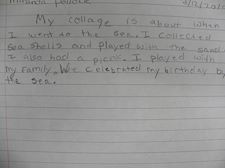 My collage is about when
I went to the sea. I collected
Sea shells and played with the sand
I also had a picnic. I played with
my family. We celebrated my birthday by
the sea.